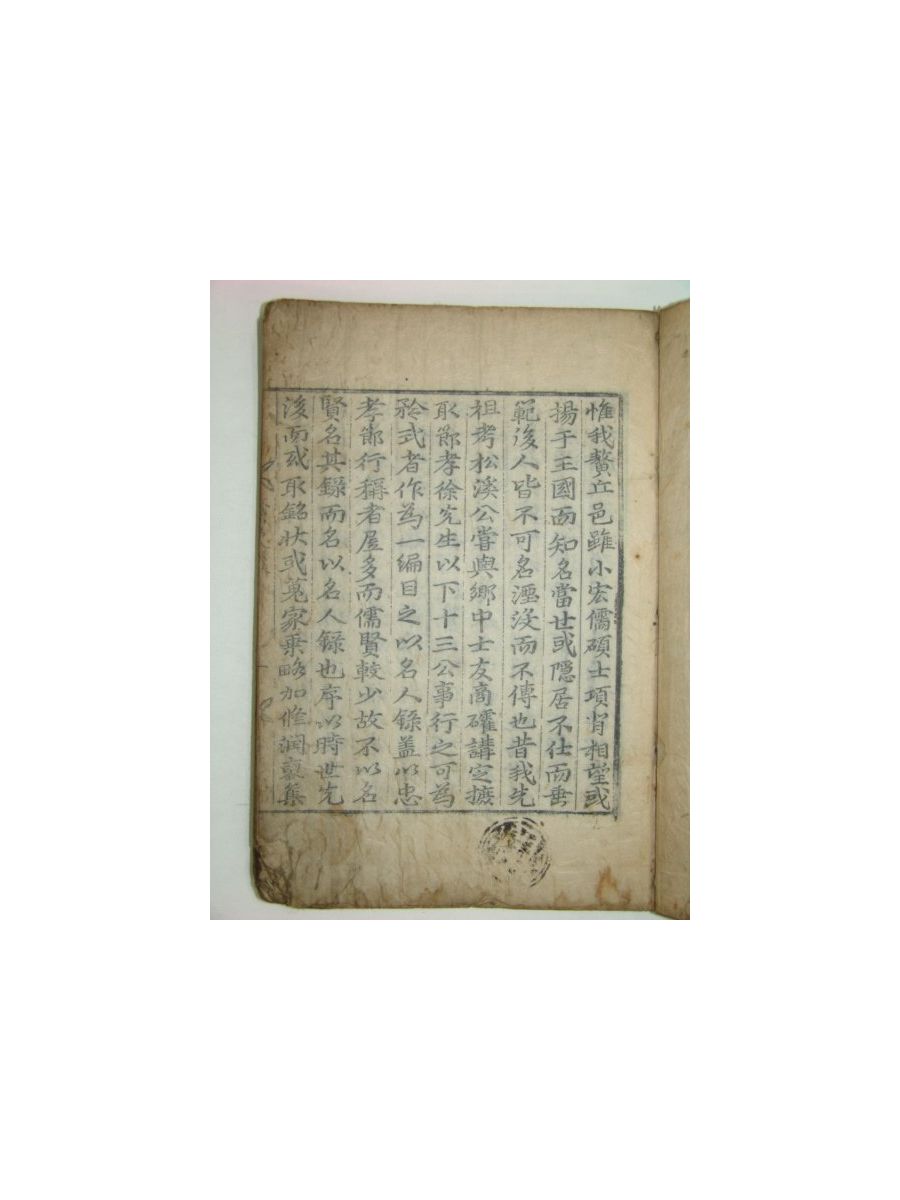 惟我鰲丘邑雖小宏儒碩士項背相望或
揚于王國而知名當世或隱居不仕而垂
範後人皆不可名湮沒而不傳也昔我先
祖考松溪公嘗與鄉中士友商確講定摭
取節孝徐先生以下十三公事行之可為
矜式者作為一編目之以名人錄盖以忠
孝節行稱者居多而儒賢較少故不以名
賢名其錄而名以名人錄也序以時世先
後而或取銘狀或蒐家乗略加修潤裒集